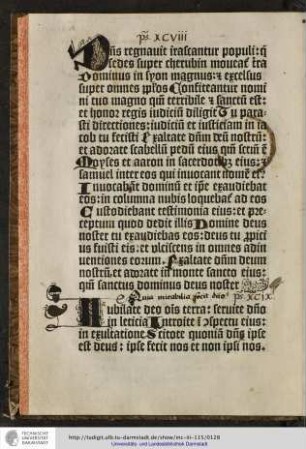 ps. XCVIII
Dñs regnauit irascantur populi: q̃
sedes super cherubin moueat̃ t̃ra
Dominus in syon magnus: ⁊ excelsus
super omnes pp̃los Confiteantur nomi
ni tuo magno qm̃ terribile ⁊ sanctũ est:
et honor regis iudiciũ diligit Tu para
sti directiones: iudiciũ et iusticiam in ia
cob tu fecisti Exaltate dñm deũ nostrũ:
et adorate scabellũ pedũ eius qm̃ scñm ẽ
Moyses et aaron in sacerdotibꝫ eius: ⁊
samuel inter eos qui inuocant nomẽ eiꝰ
Inuocabãt dominũ et ip̃e exaudiebat
eos: in columna nubis loquebat̃ ad eos
Custodiebant testimonia eius: et pre
ceptum quod dedit illis Domine deus
noster tu exaudiebas eos: deus tu ꝓpici
us fuisti eis: et vlciscens in omnes adin
uentiones eorum. Exaltate dñm deum
nostrũ. et adorate in monte sancto eius:
qm̃ sanctus dominus deus noster
Quia mirabilia fecit dñs ps. XCIX.
Iubilate deo oĩs terra: seruite dño
in leticia Introite ĩ ↄspectu eius:
in exultatione Scitote quoniã dñs ip̃se
est deus: ipse fecit nos et non ipsi nos.
TECHNISCHE
UNIVERSITÄT
DARMSTADT
http://tudigit.ulb.tu-darmstadt.de/show/inc-iii-115/0128
Universitäts- und Landesbibliothek Darmstadt